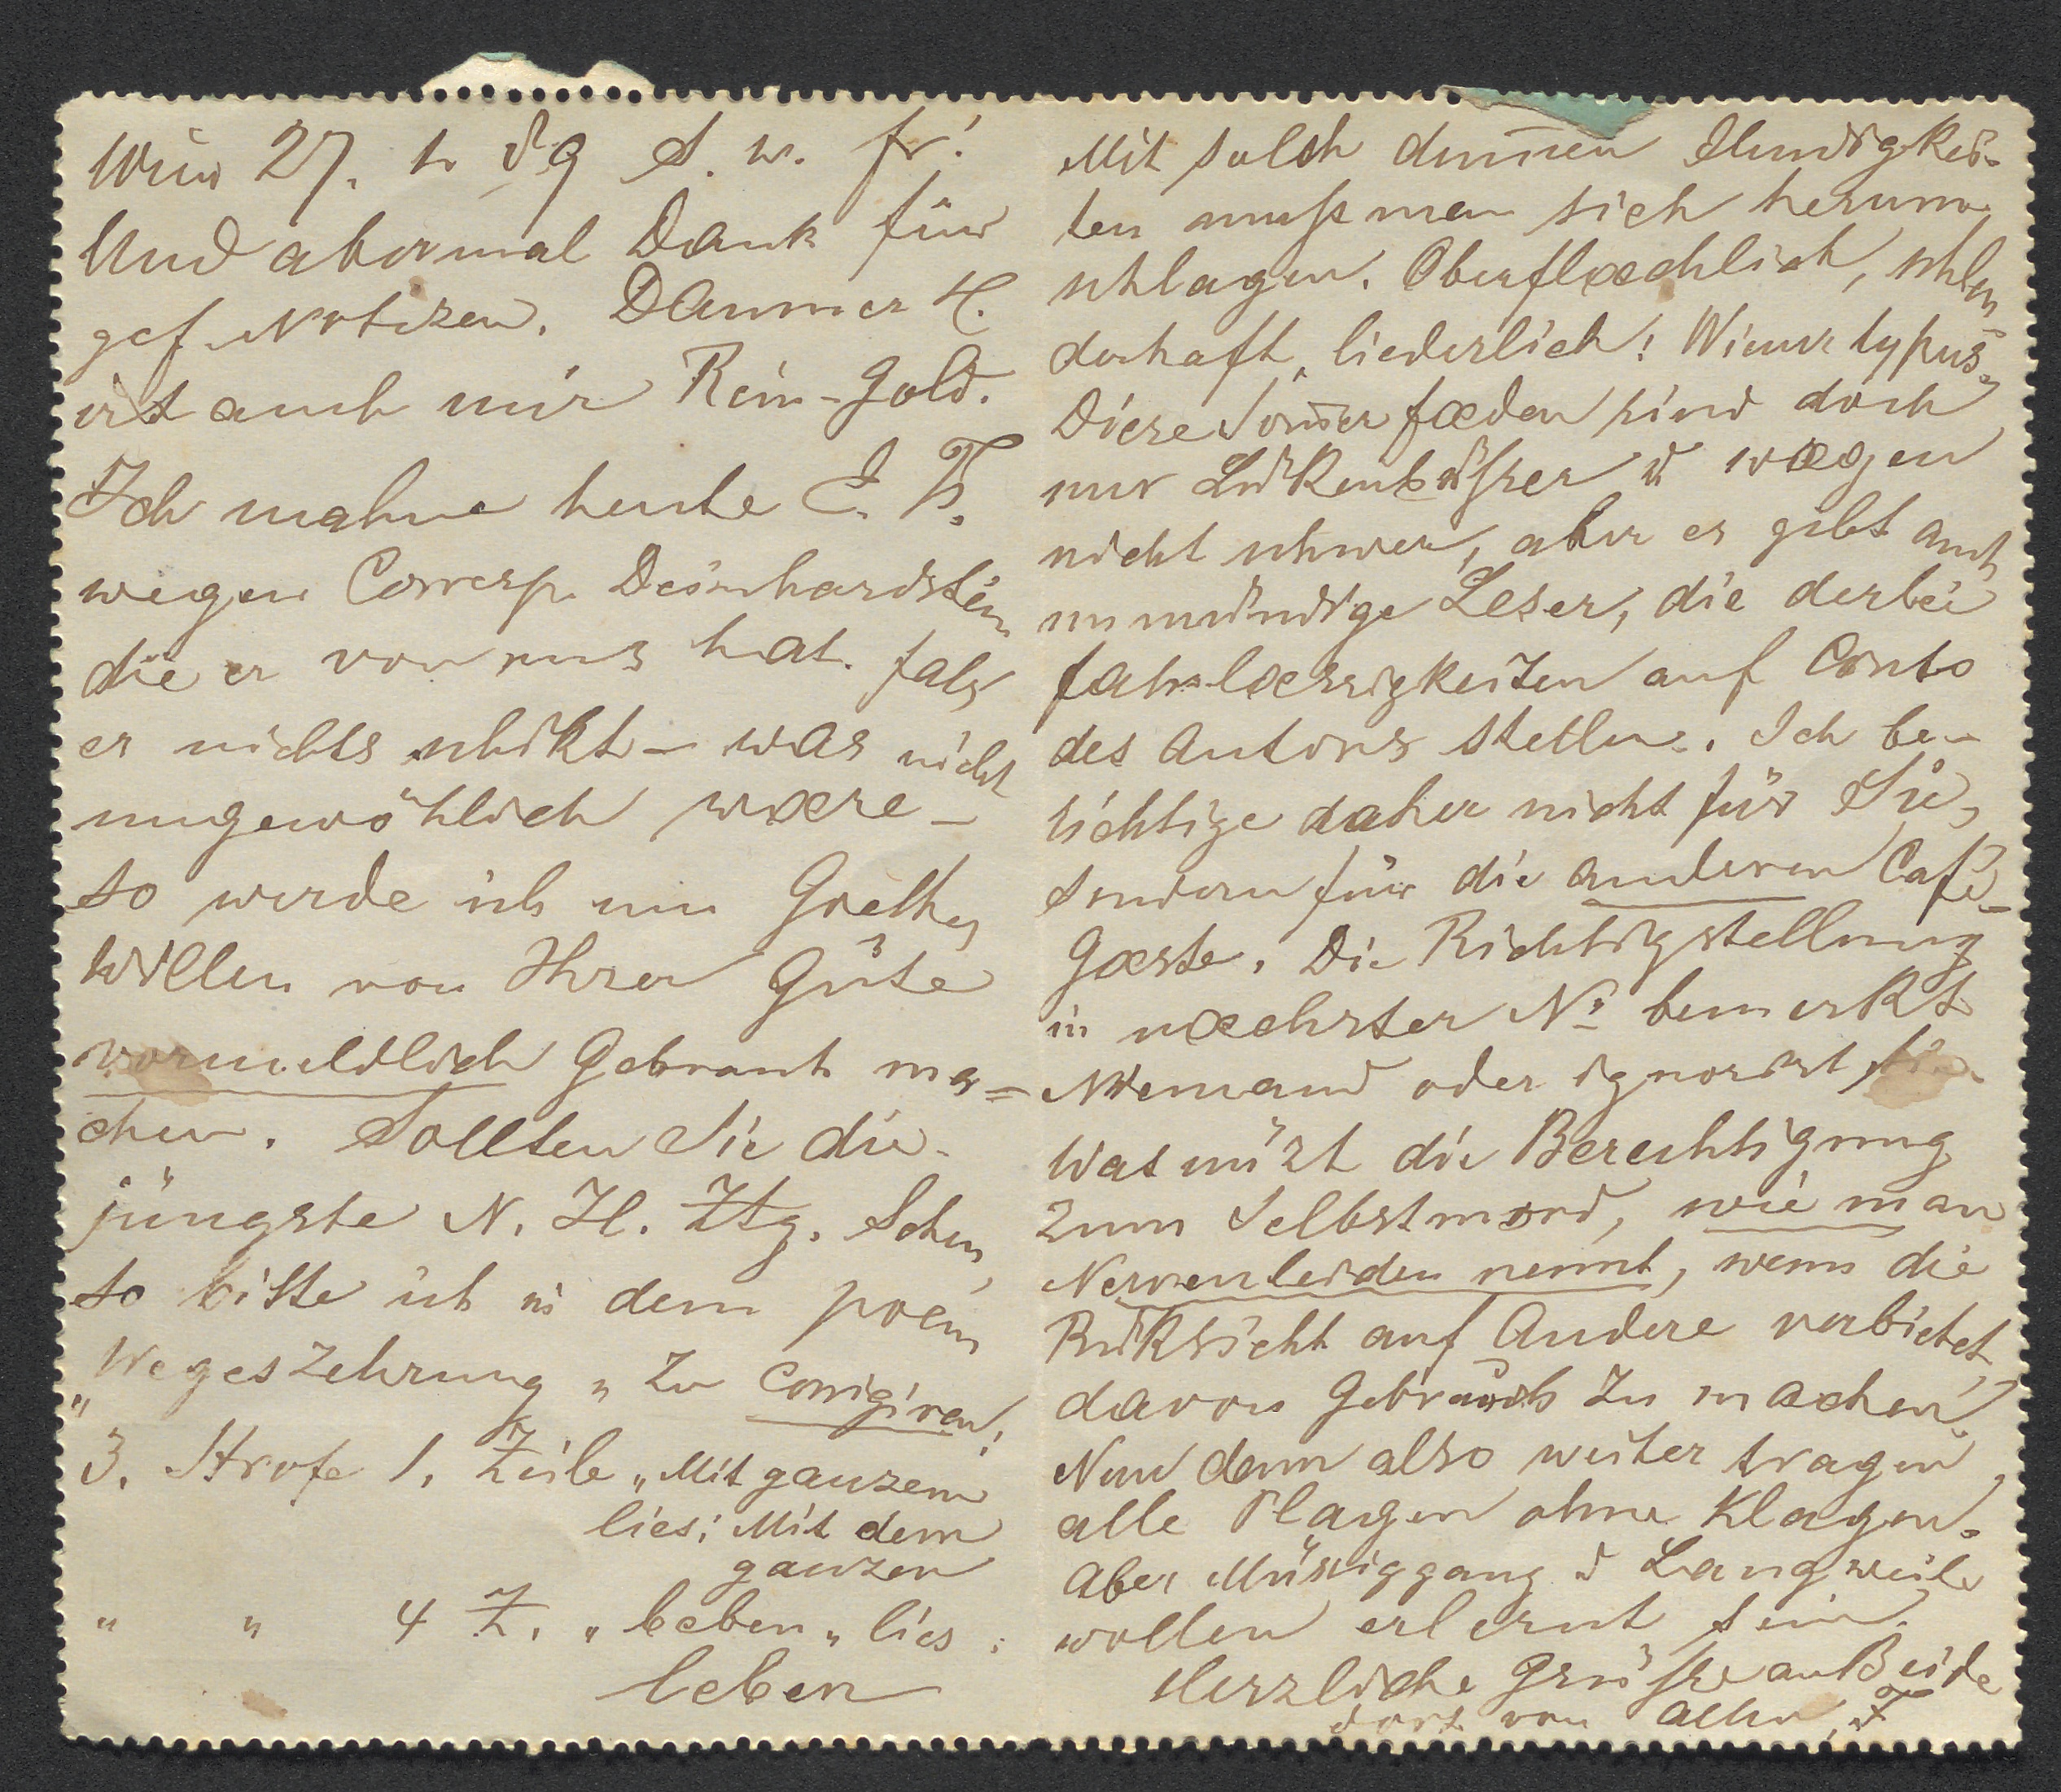 Wien 27. 1. 89 S. w. Fr!
Und abermal Dank für
gef. Notizen. Daumer H.
ist auch mir Rein-Gold.
Ich mahne heute E. K.
wegen Corresp. Deinhardstein
die er von uns hat. falls
er nichts schikt – was nicht
ungewöhlich wære –
so werde ich um Goethes
Willen von Ihrer Güte
vormeldlich Gebrauch ma=
chen. Sollten Sie die
jüngste N. Il. Ztg. Sehen,
so bitte ich in dem poem
„Wegeszehrung„ zu corrigiren:
3. Strofe 1. Zeile „Mit ganzem
lies: Mit dem
ganzen
" " 4 Z. „beben„ lies:
leben
Mit solch dum̄en Hundigkei-
ten muß man sich herum
schlagen. Oberflæchlich, schleu-
derhaft, liederlich! Wiener typus.
Diese Som̄erfæden sind doch
nur Lükenbüßer u wægen
nicht schwer, aber es gibt auch
unmündige Leser, die derlei
fahrlæssigkeiten auf Conto
des Autors stellen. Ich be-
sichtige daher nicht für Sie,
sondern für die anderen Café-
Gæste. Die Richtigstellung
in næchster No bemerkt
Niemand oder ignorirt sie.
Was nüzt die Berechtigung
zum Selbstmord, wie man
Nervenleiden nennt, wenn die
Rüksicht auf Andere verbietet,
davon Gebrauch zu machen!
Nun denn also weiter tragen
alle Plagen ohne Klagen.
Aber Müssiggang u Langweile
wollen erlernt sein.
Herzliche Grüße an Beide
dort von Allen, F